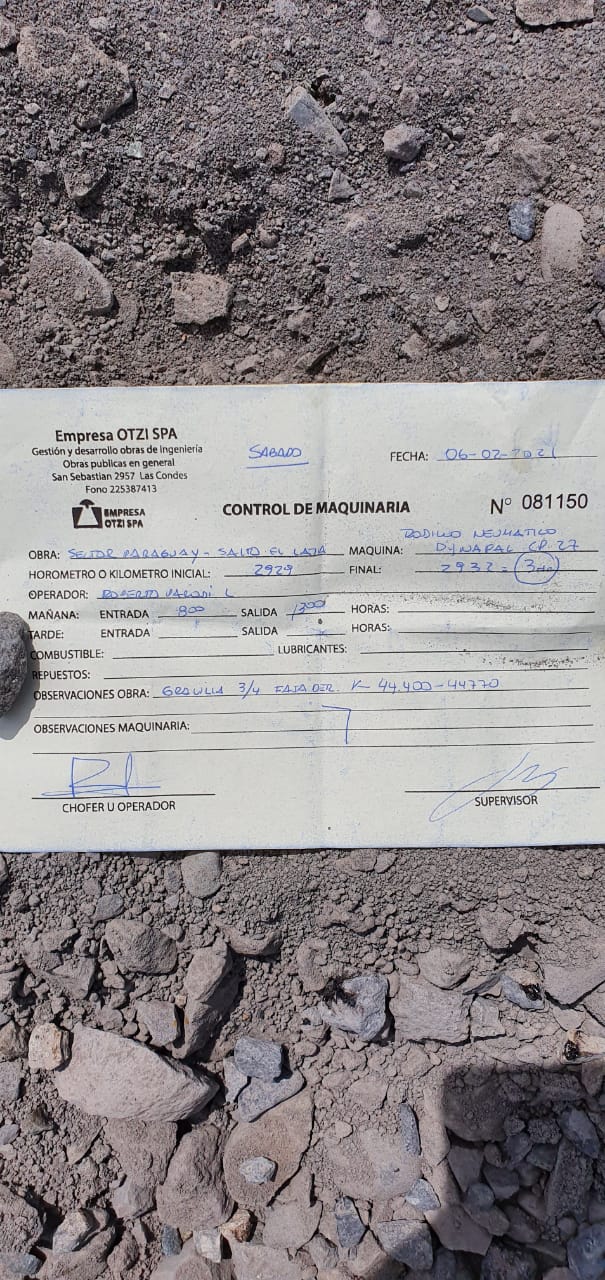 Empresa OTZI SPA
Gestión y desarrollo obras de Ingeniería
Obras publicas en general
San Sebastian 2957 Las Condes
Fono 225387413
EMPRESA
OTZI SPA
SABADO
FECHA: 06-02-2021
CONTROL DE MAQUINARIA
Nº 081150
OBRA: SECTOR PARAGUAY - SALTO EL LAJA
MAQUINA: RODILLO NEUMATICO
DYNAPAC CP. 27
HOROMETRO O KILOMETRO INICIAL: 2929
FINAL: 2932 = 3
OPERADOR: ROBERTO
MAÑANA: ENTRADA 8:00 SALIDA 13:00 HORAS:
TARDE: ENTRADA SALIDA HORAS:
COMBUSTIBLE: LUBRICANTES:
REPUESTOS:
OBSERVACIONES OBRA: GRAVILLA 3/4 FAJA DER. K 44.400-44770
OBSERVACIONES MAQUINARIA:
CHOFER U OPERADOR
SUPERVISOR